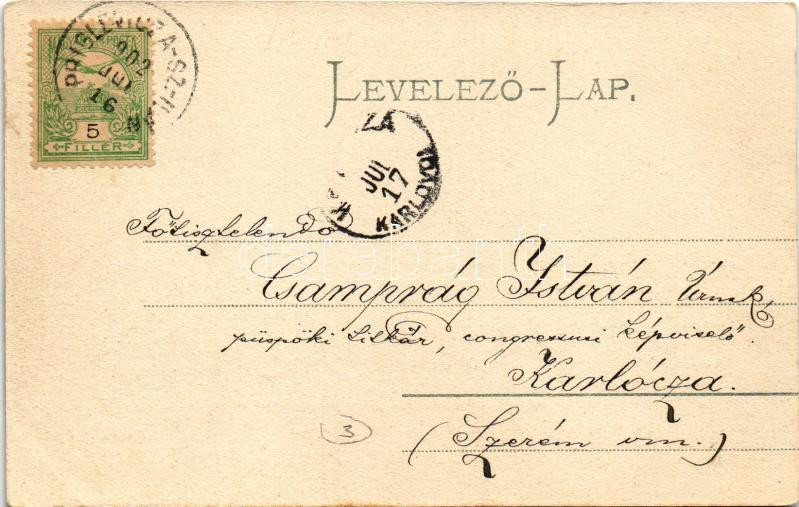 PRIGLEVICZA-SZ-IVÁN
902
JUL
16
5
FILLÉR
LEVELEZŐ-LAP.
ZA
JUL
17
KARLOVCI
Főtisztelendő
Csamprág István Úrnak
püspöki titkár, congressusi képviselő.
Karlócza.
(Szerém vm.)
3
darabanth